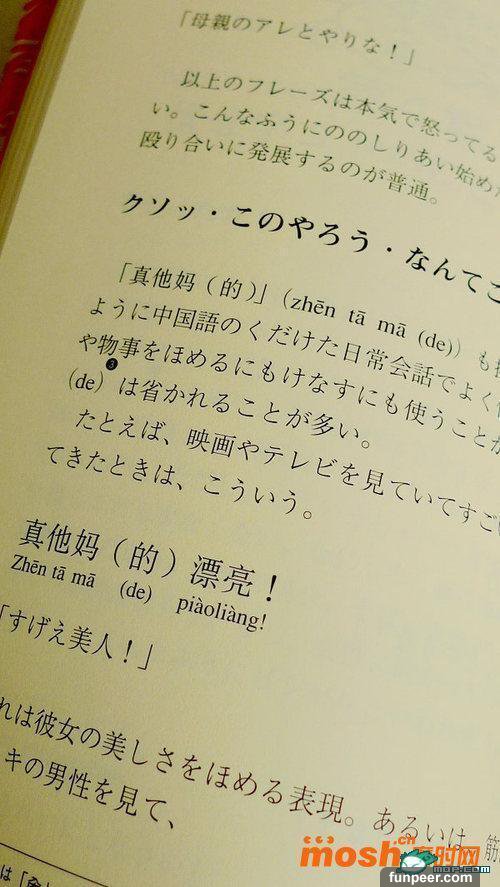 「母親のアレとやりな！」
以上のフレーズは本気で怒ってる
い。こんなふうにののしりあい始め
殴り合いに発展するのが普通。
クソッ・このやろう・なんてこ
「真他妈（的）」(zhēn tā mā (de)) も
ように中国語のくだけた日常会話でよく
や物事をほめるにもけなすにも使うことが
❸
(de) は省かれることが多い。
たとえば、映画やテレビを見ていてすご
てきたときは、こういう。
真他妈（的）漂亮！
Zhēn tā mā (de) piàoliàng!
「すげえ美人！」
れは彼女の美しさをほめる表現。あるいは、筋
キの男性を見て、
は「
mosh.cn
有时网
MOP.COM
funpeer.com